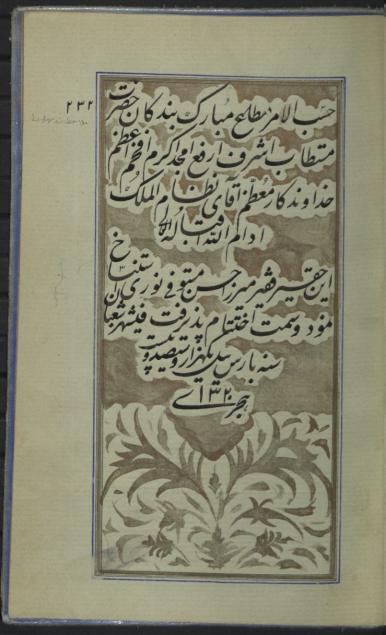 ۲۳۲
حسب الامر مطاع مبارک بندکان حضرت
مستطاب اشرف ارفع امجد اکرم افخم اعظم
خداوندکار معظم آقای نظام الملک
ادام الله اقباله
این حقیر فقیر میرزا حسن مستوفی نوری استنساخ
نمود و سمت اختتام پذیرفت فی شهر شعبان
سنه بارس ئیل یکهزار و سیصد و بیست
۱۳۲۰
هجری